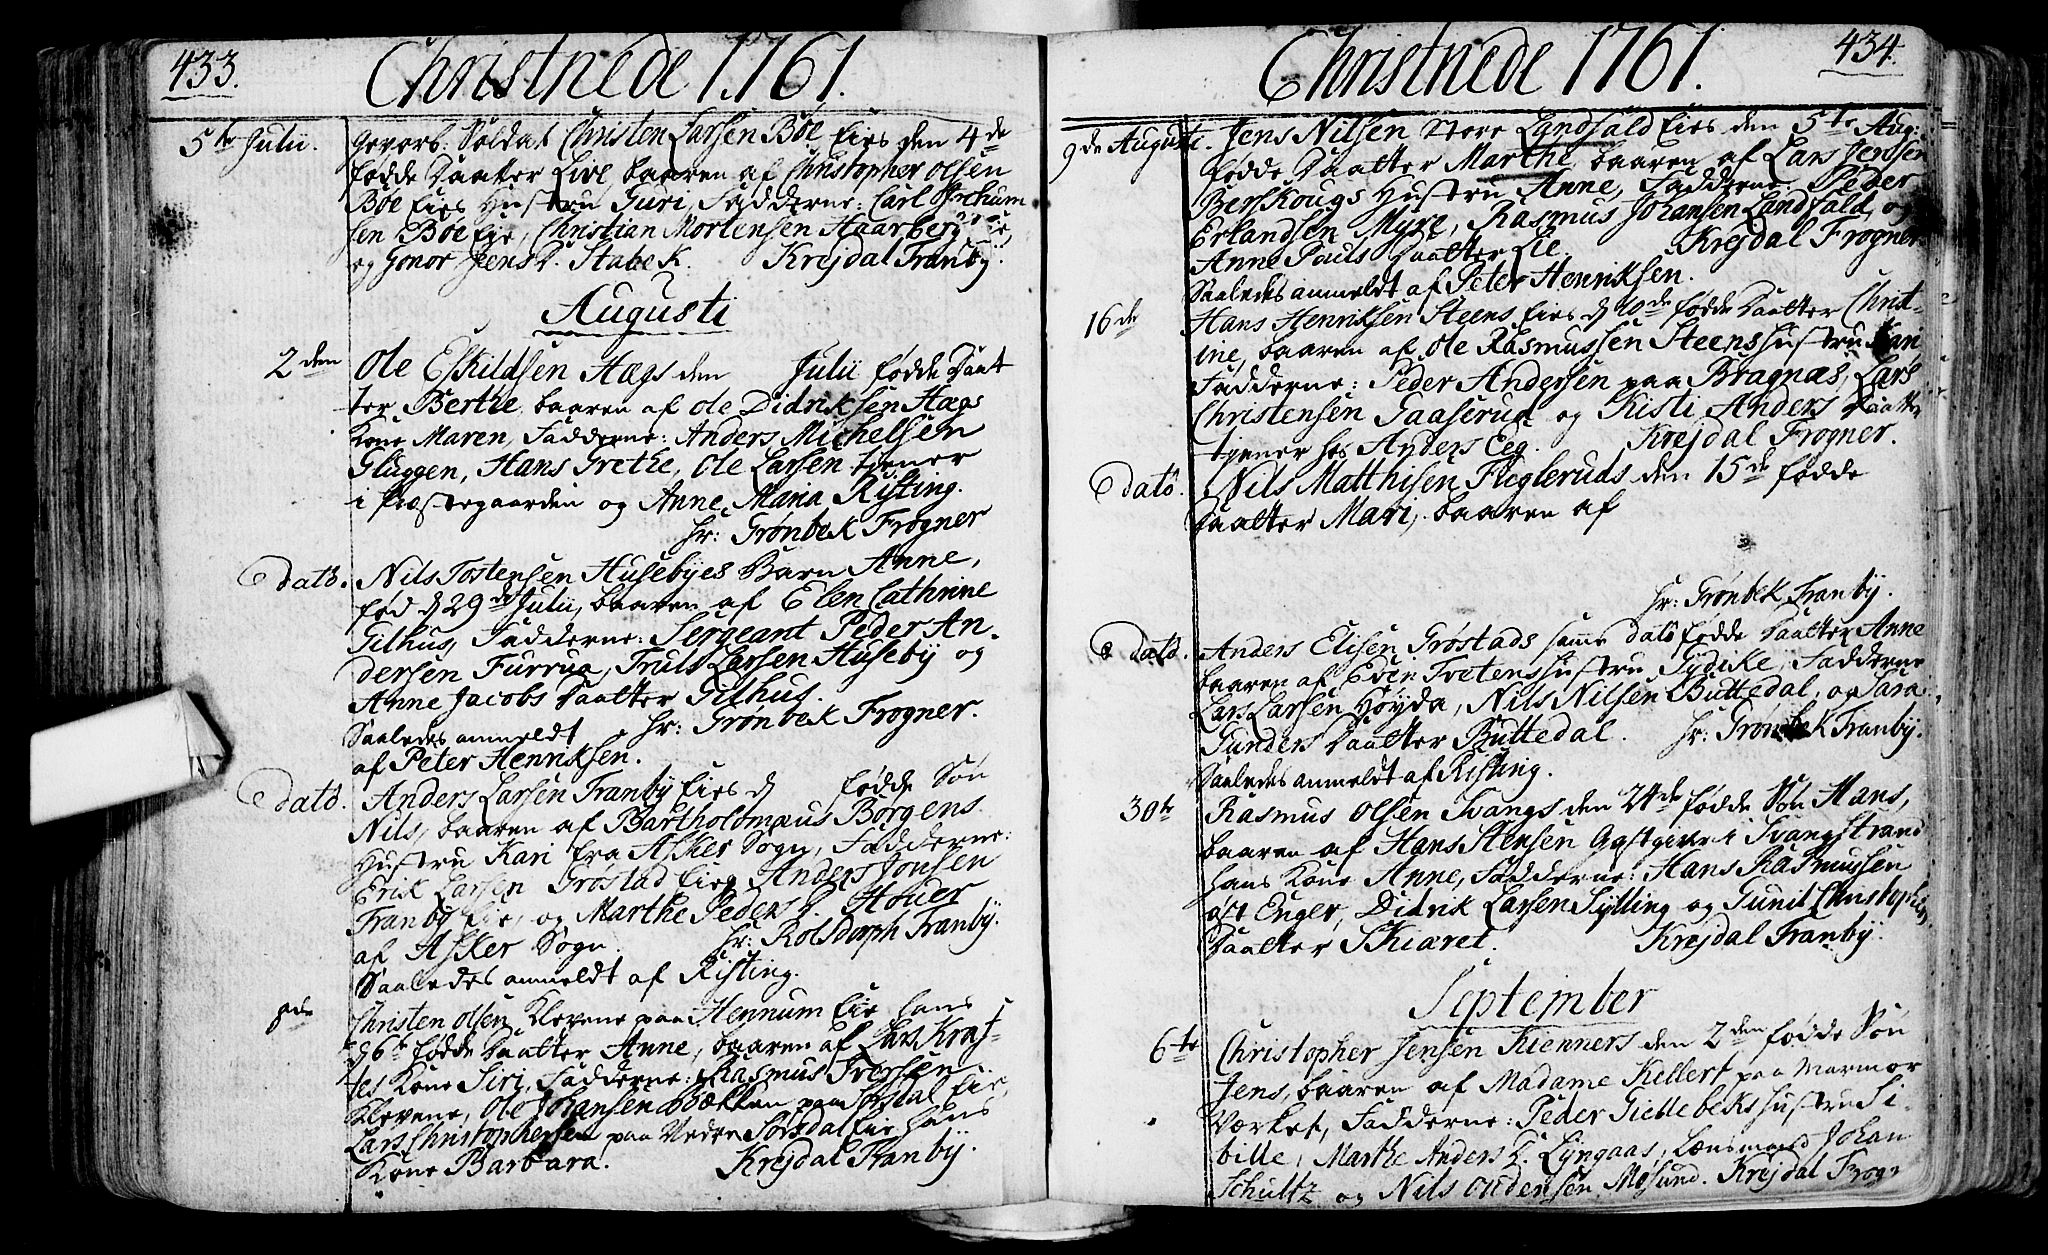 433.
Christnede 1761.
5te Julii.
Gevorb: Soldat Christen Larsen Böe Eies den 4de
fødde Daatter Live, baaren af Christopher Olsen
Böe Eies Hustru Guri, Fadderne: Carl
sen Böe Eje, Christian Mortensen Haarberg Eie,
og Gonor Jens D. Stabek. Krejdal Franby.
Augusti
2den
Ole Eskildsen Aags den Julii fødde Daat
ter Berthe, baaren af Ole Didriksen Aags
Kone Maren, Fadderne: Anders Michelsen
Gluggen, Hans Grethe, Ole Larsen tjener
i Præstegaarden og Anne Maria Risting.
Hr: Grønbek Frogner
dato.
Nils Tostensen Husebyes Barn Anne,
fød d 29de Julii, baaren af Elen Cathrine
Gilhus, Fadderne: Sergeant Peder An-
dersen Furrua, Truls Larsen Huseby og
Anne Jacobs Daatter Gilhus.
Saaledes anmeldt Hr: Grønbek Frogner.
af Peter Henriksen.
dato.
Anders Larsen Franby Eies d fødde Søn
Nils, baaren af Bartholomæus Borgens
Hustru Kari fra Asker Sogn, Fadderne:
Erik Larsen Grøstad Eie, Anders Jonsen
Franby Eie, og Marthe Peders D. Houer
af Asker Sogn. Hr: Rolsdorph Franby.
Saaledes anmeldt af Risting.
9de
Christen Olsen Klevene paa Hennum Eie hans
d 6te fødde Daatter Anne, baaren af Lars Kraf-
tes Kone Siri, Fadderne: Rasmus Iversen
Klevene, Ole Johansen Bækken paa Sørsdal Eie,
Lars Christophersen paa Nedre Sørsdal Eie hans
Kone Barbara. Krejdal Franby.
434.
Christnede 1761.
9de Augusti.
Jens Nilsen Store Landfald Eies den 5te Aug:
fødde Daatter Marthe, baaren af Lars Jensen
Berskougs Hustru Anne, Fadderne: Peder
Erlandsen Myre, Rasmus Johansen Landfald, og
Anne Pouls Daatter Lie. Krejdal Frogner.
Saaledes anmeldt af Peter Henriksen.
16de
Hans Henriksen Steens Eies d 10de fødde Daatter Christ-
ine, baaren af Ole Rasmussen Steens Hustru Kari
Fadderne: Peder Andersen paa Bragnæs, Lars
Christensen Gaaserud og Kisti Anders Daatter
tjener hos Anders Eeg. Krejdal Frogner.
dato.
Nils Matthisen Fugleruds den 15de fødde
Daatter Mari, baaren af
Hr: Grønbek Franby.
dato.
Anders Elisen Grøstads samme dato fødde Daatter Anne
baaren af Even Tvetens Hustru Sydike, Fadderne
Lars Larsen Høyda, Nils Nilsen Buttedal, og Sara
Gunders Daatter Buttedal. Hr: Grønbek Franby.
Saaledes anmeldt af Risting.
30te
Rasmus Olsen Svangs den 24de fødde Søn Hans,
baaren af Hans Stensen Gastgiver i Svangstrand
hans Kone Anne, Fadderne: Hans Rasmussen
øst Enger, Didrik Larsen Sylling og Gunil Christophers
Daatter Skiæret. Krejdal Franby.
September
6te
Christopher Jensen Kienners den 2den fødde Søn
Jens, baaren af Madame Kellert paa Marmor
Værket, Fadderne: Peder Giellebeks Hustru Si-
bille, Marthe Anders D. Lyngaas, Lænsmand Johan
Schultz og Nils Oudensen Møsund. Krejdal Frogn